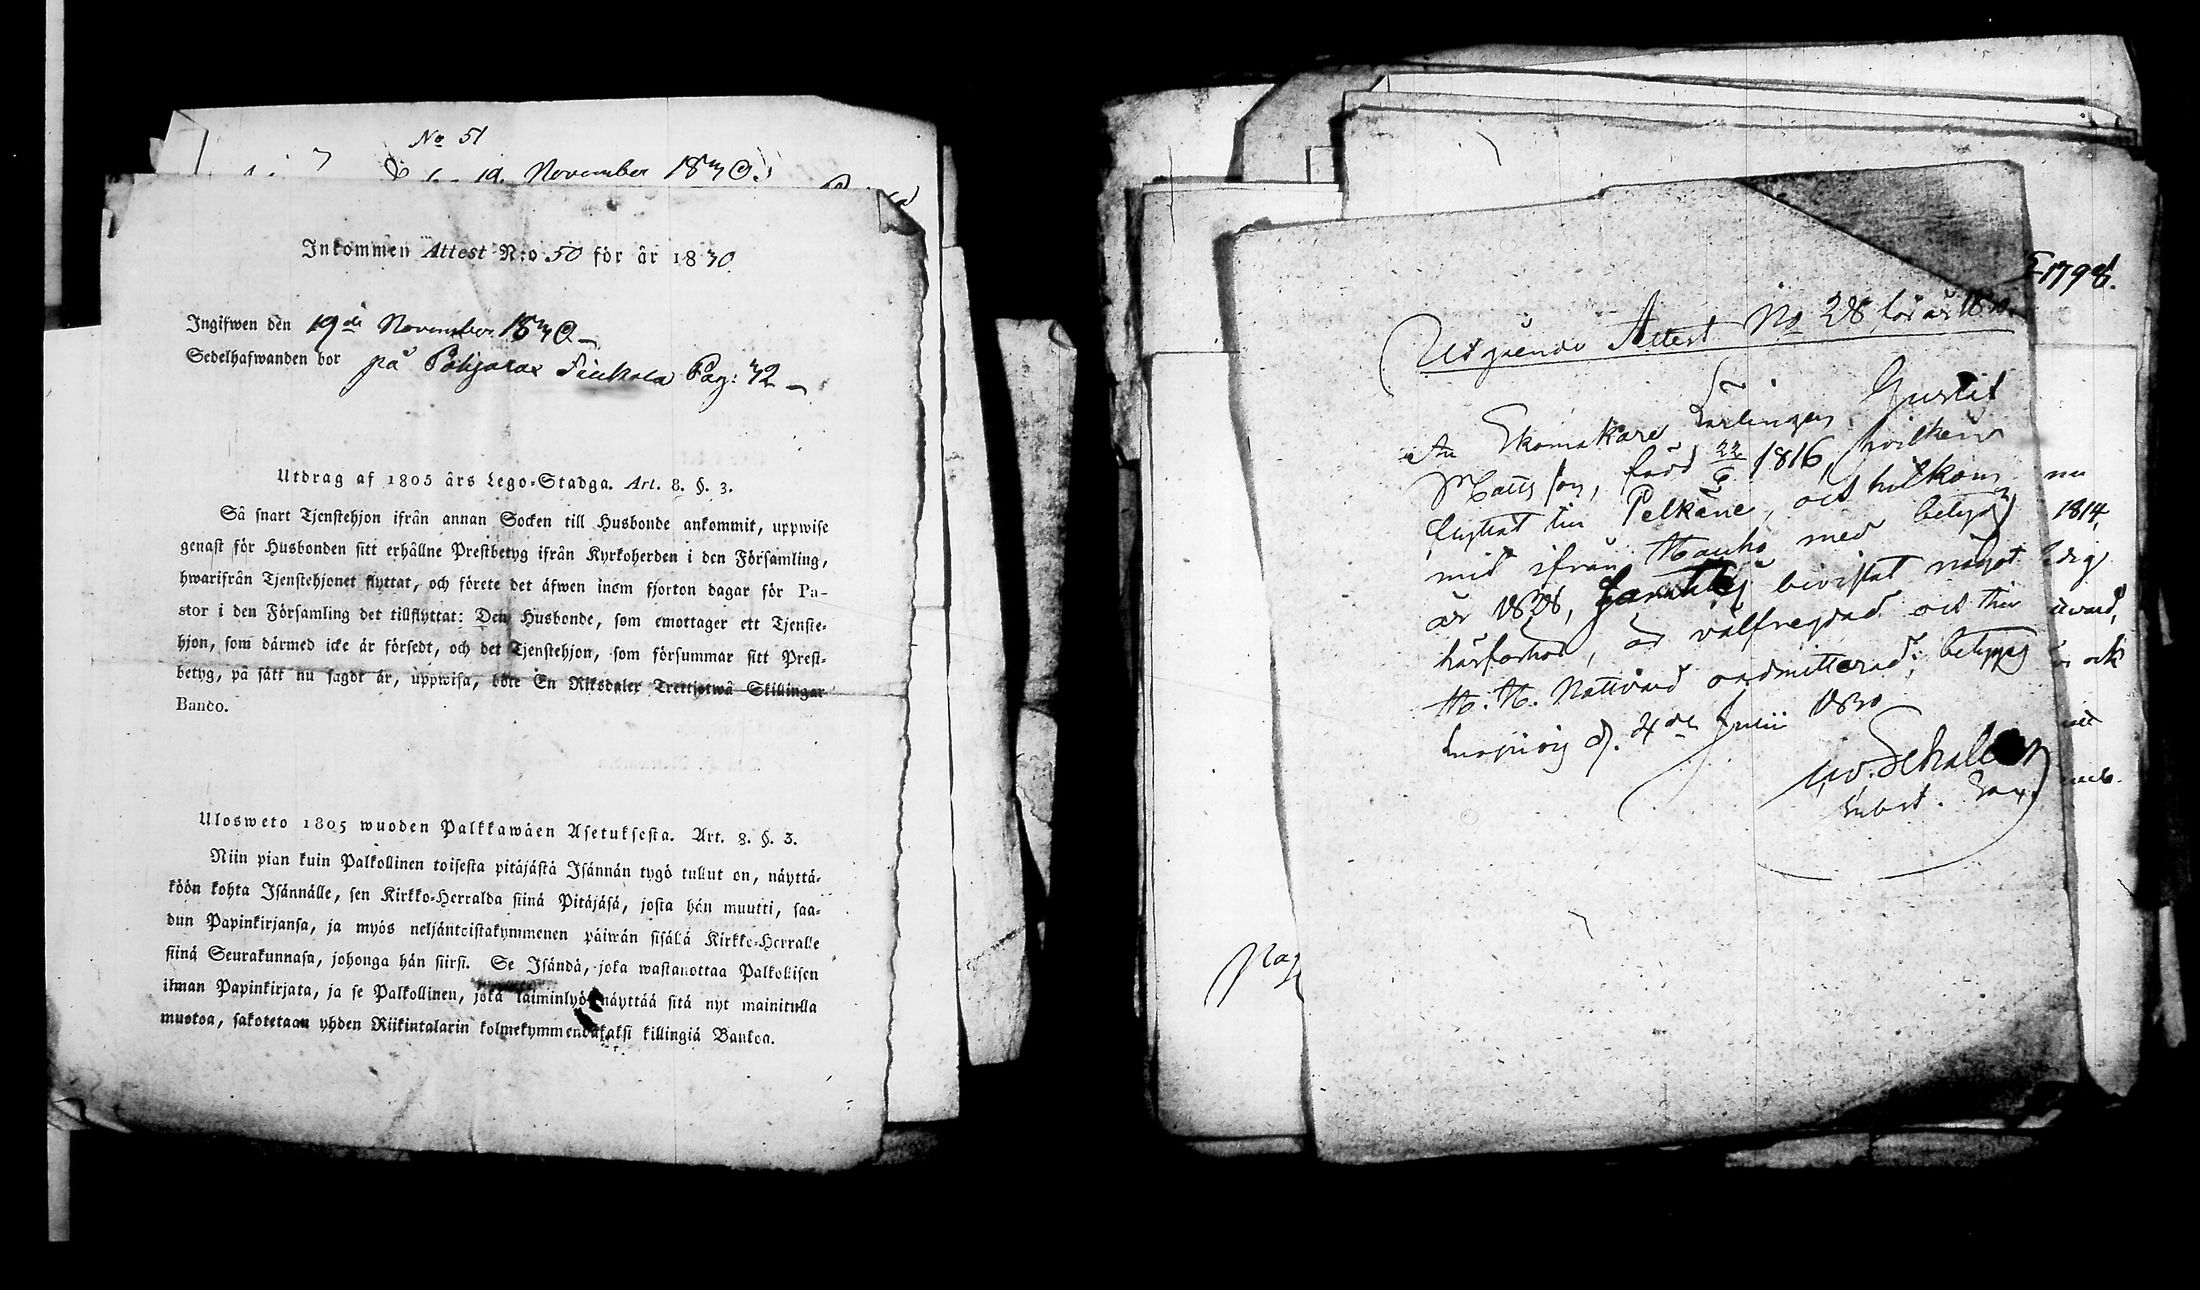 No 51
19 November 1830
Inkommen Attest N:o 50 för år 1830.
Ingifwen den 19de November 1830
Sedelhafwanden bor på Pohjaras Pag: 42
Utdrag af 1805 års Lego-Stadga. Art. 8. §. 3.
Så snart Tjenstehjon ifrån annan Socken till Husbonde ankommit, uppwise
genast för Husbonden sitt erhållne Prestbetyg ifrån Kyrkoherden i den Församling,
hwarifrån Tjenstehjonet flyttat, och förete det äfwen inom fjorton dagar för Pa-
stor i den Församling det tillflyttat: Den Husbonde, som emottager ett Tjenste-
hjon, som därmed icke är försedt, och det Tjenstehjon, som försummar sitt Prest-
betyg, på sätt nu sagdt är, uppwisa, böte En Riksdaler Trettjotwå Skillingar
Banco.
Ulosweto 1805 wuoden Palkkawäen Asetuksesta. Art. 8. §. 3.
Niin pian kuin Palkollinen toisesta pitäjästä Isännän tygö tullut on, näyttä-
köön kohta Isännälle, sen Kirkko-Herralda siinä Pitäjäsä, josta hän muutti, saa-
dun Papinkirjansa, ja myös neljäntoistakymmenen päiwän sisällä Kirkko-Herralle
siinä Seurakunnasa, johonga hän siirsi. Se Isändä, joka wastanottaa Palkollisen
ilman Papinkirjata, ja se Palkollinen, joka laiminlyö näyttää sitä nyt mainitulla
muotoa, sakotetaan yhden Riikintalarin kolmekymmendäkaksi killingiä Bankoa.
1798.
Utgående Attest No 28 för år 1830
Skomakare Lärlingen Gustaf
Mattsson, född 22/6 1816, hvilken
flyttat till Pelkäne, och hitkom
med ifrån Hauho med betyg
år 1828, bevistat något
läsförhör, är välfregdad och till
H. H. Nattvard admitterad; betygas
d. 4de Julii 1830
1814,
Pag